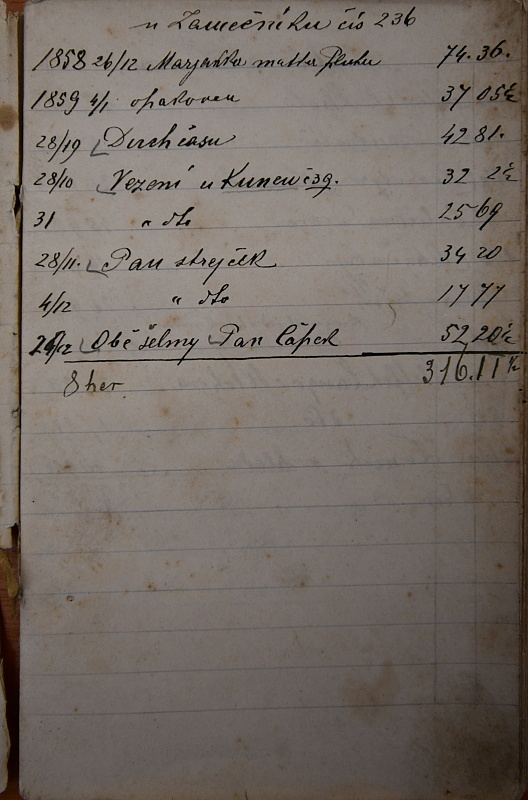 u Zamečníku čís 236
1858 26/12 Marjánka matka pluku 74.36.
1859 4/1 opakovou 37 05½
28/19 Duch času 42 81.
28/10 Vezení u Kunew č39. 32 2½
31 " dto 25 69
28/11. Pan strejček 34 20
4/12 " dto 17 77
26/12 Obě šelmy Pan Čápek 52,20½
8 her 316.11½